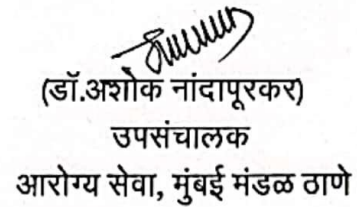 (डॉ.अशोक नांदापूरकर)
उपसंचालक
आरोग्य सेवा, मुंबई मंडळ ठाणे